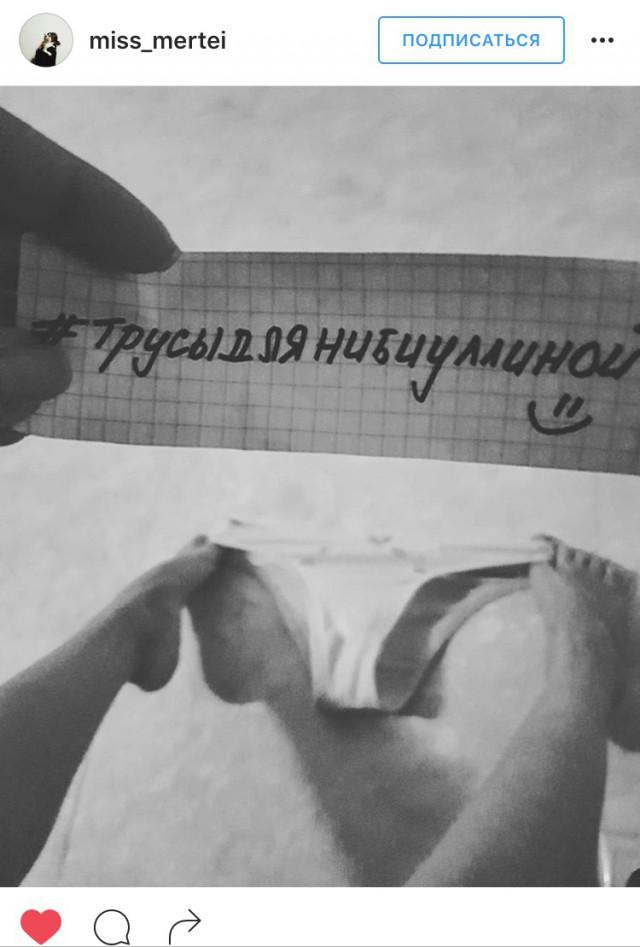 miss_mertei
ПОДПИСАТЬСЯ
#трусыдлянибиуллиной